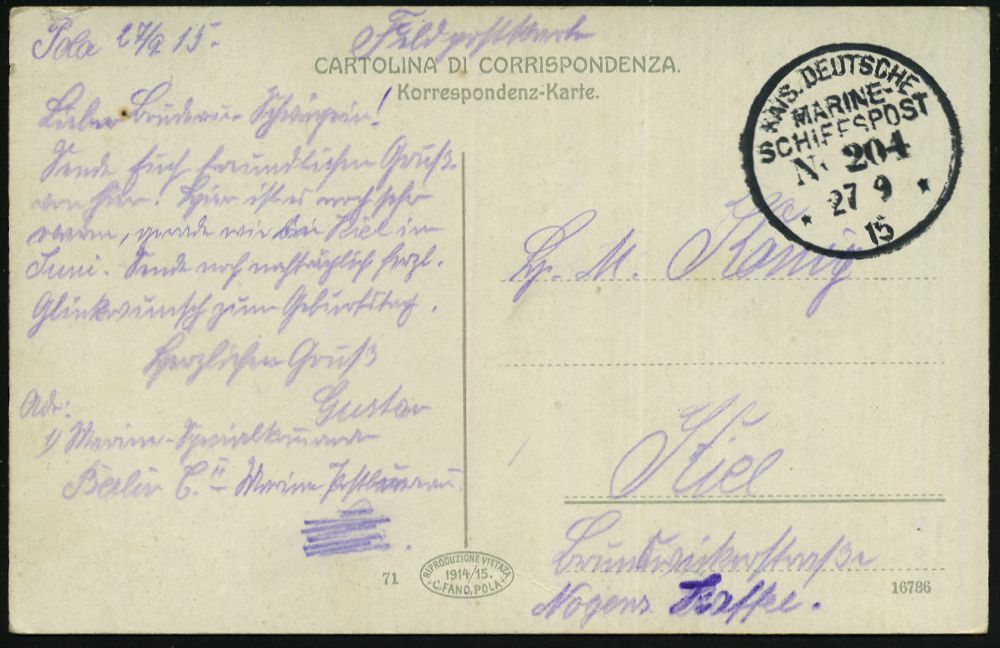 Pola 27/9 15.
Feldpostkarte
CARTOLINA DI CORRISPONDENZA.
Korrespondenz-Karte.
KAIS. DEUTSCHE
MARINE-
SCHIFFSPOST
No 204
* 27 9 *
15
Lieber Bruder u. Schwägerin!
Sende Euch freundlichen Gruß
von hier. Hier ist es noch sehr
warm, gerade wie bei Kiel im
Juni. Sende noch nachträglich herzl.
Glückwunsch zum Geburtstag.
Herzlichen Gruß
Gustav
Adr:
Marine-Spezialkommando
Berlin C. Marine Postbureau
M. König
Kiel
Brunswickerstraße
71
RIPRODUZIONE VIETATA
1914/15.
C. FANO, POLA
16786